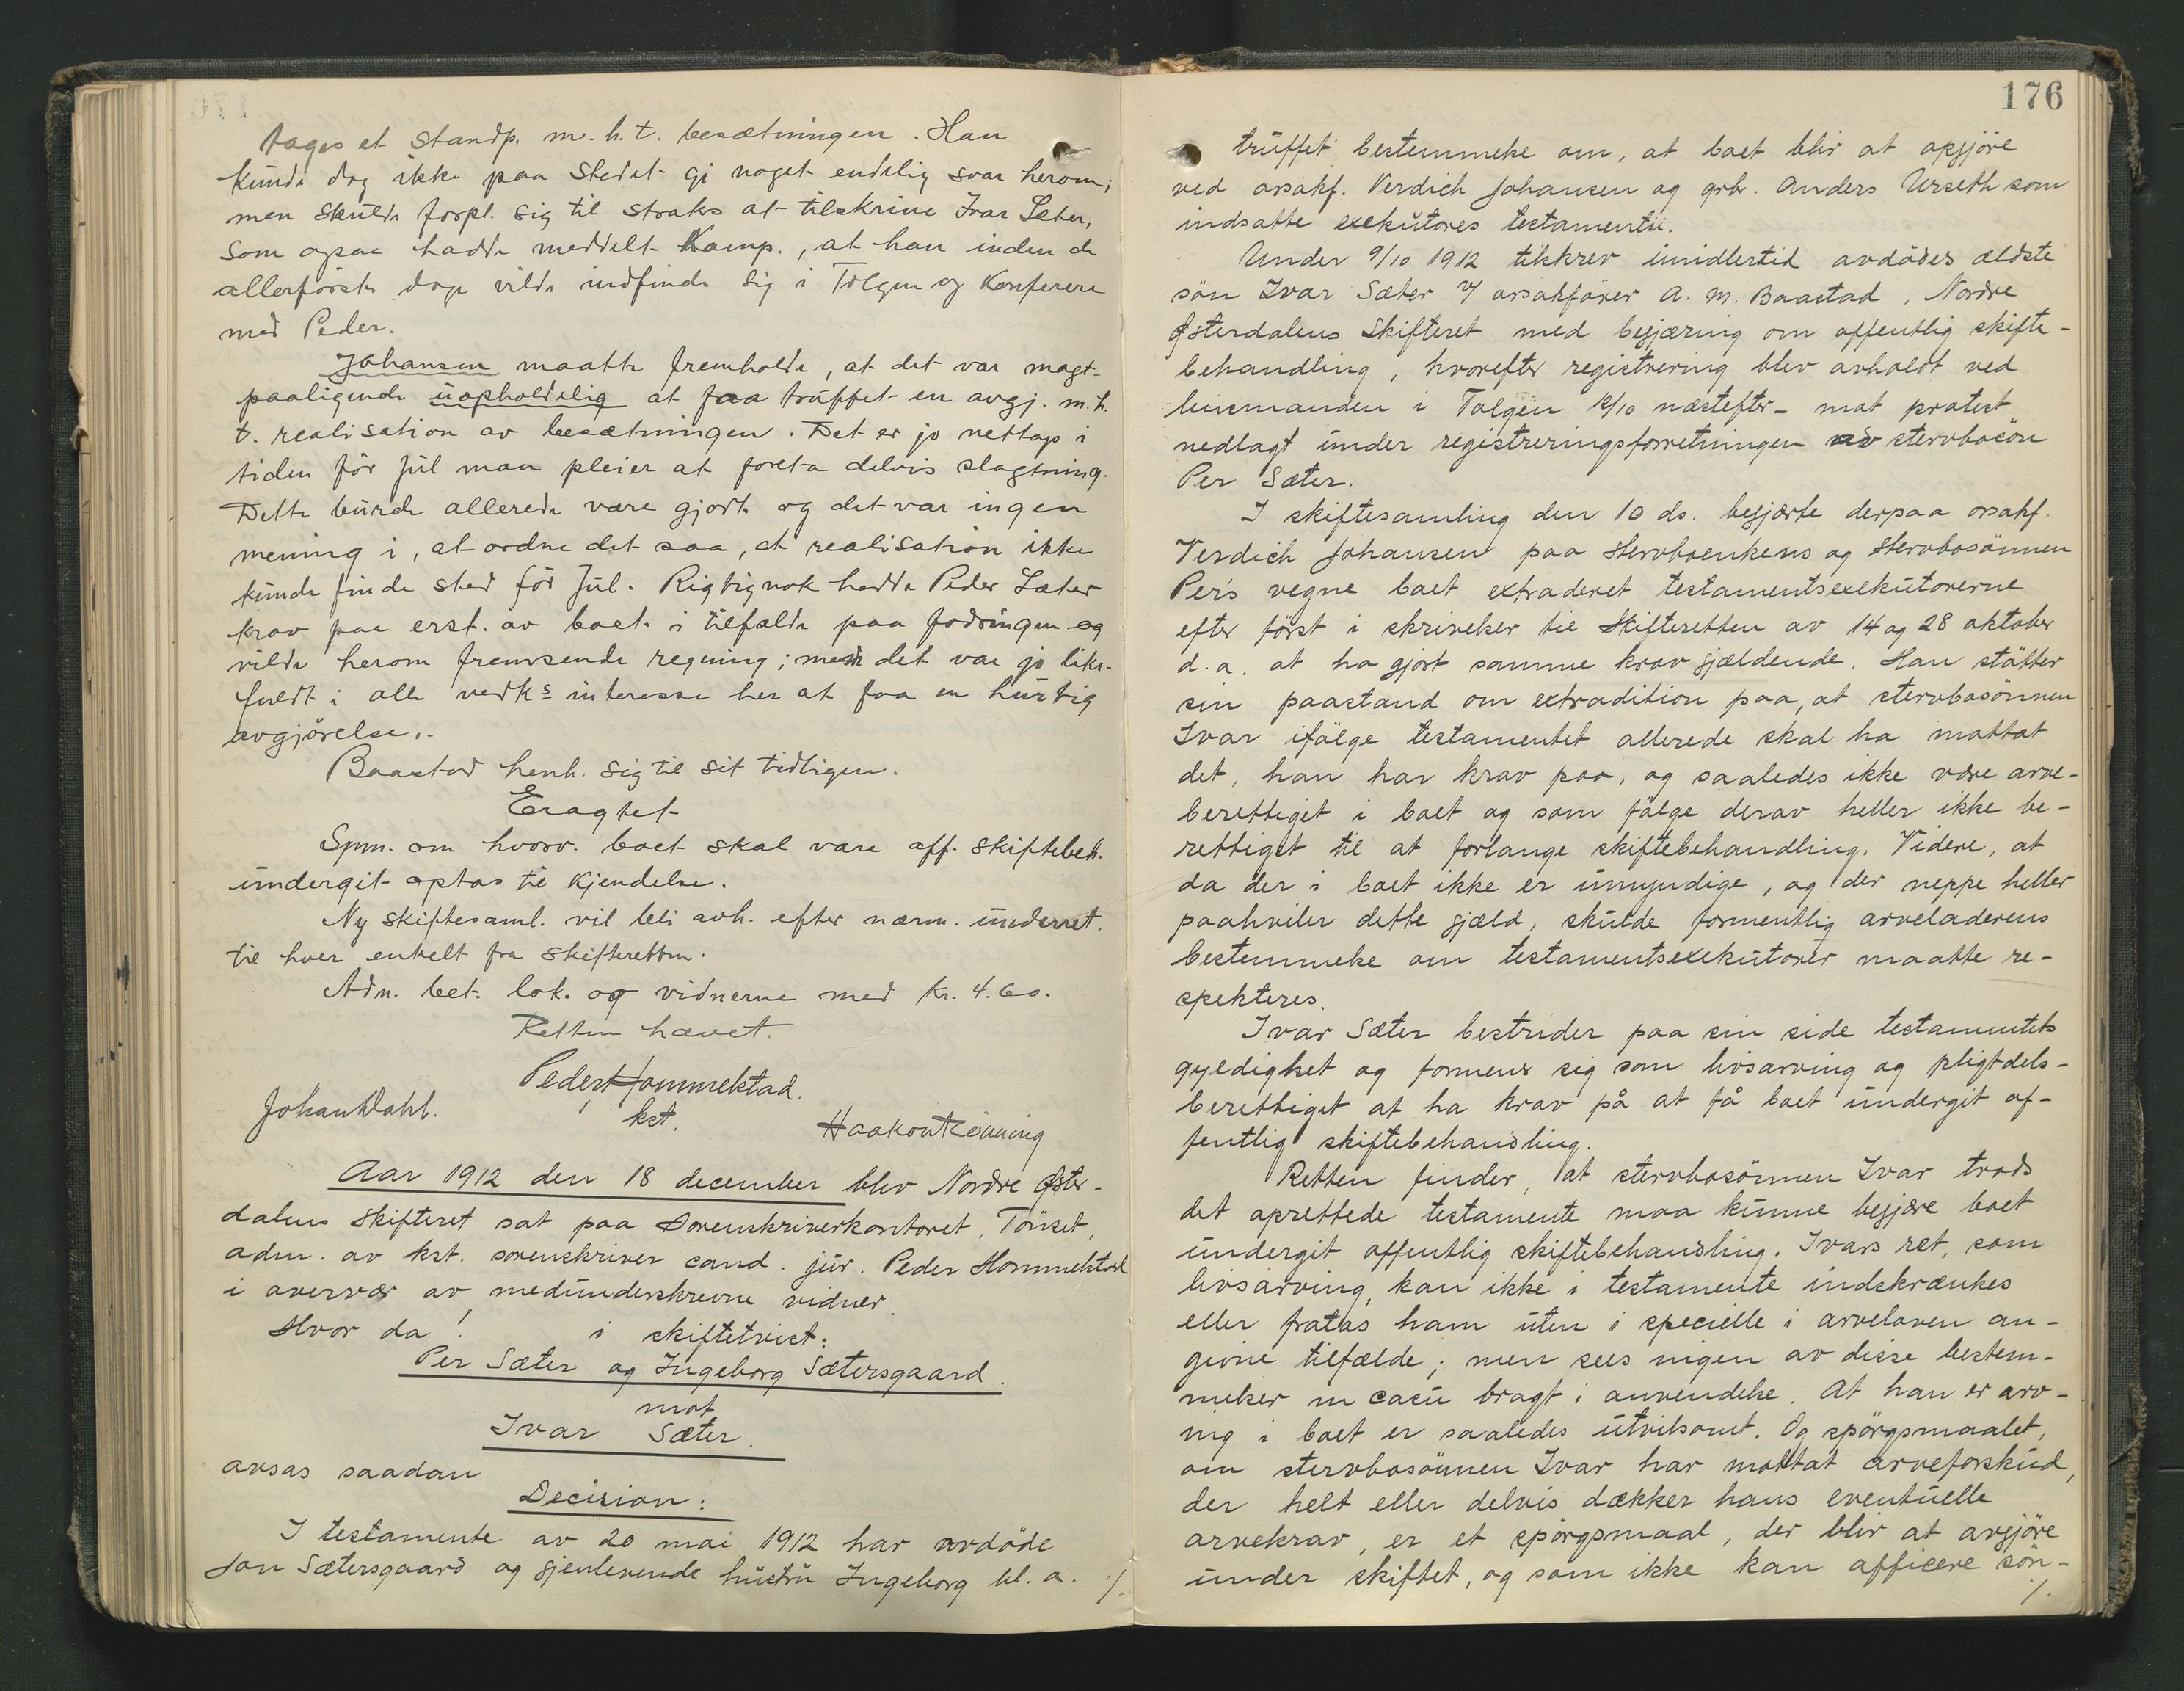 tages et standp. m.h.t. besætningen. Han
kunde dog ikke paa stedet gi noget endelig svar herom;
men skulde forpl. sig til straks at tilskrive Ivar Sæter,
som ogsaa hadde meddelt Kamp., at han inden de
allerførste dage vilde indfinde sig i Tolgen og konferere
med Peder.
Johansen maatte fremholde, at det var magt-
paaligende uopholdelig at faa truffet en avgj. m.h.
t. realisation av besætningen. Det er jo nettop i
tiden før jul man pleier at foreta delvis slagtning.
Dette burde allerede være gjort og det var ingen
mening i, at ordne det saa, at realisation ikke
kunde finde sted før jul. Rigtignok hadde Peder Sæter
krav paa erst. av boet i tilfælde paa fodringen og
vilde herom fremsende regning; men det var jo like-
fuldt i alle vedks interesse her at faa en hurtig
avgjørelse.
Baastad henh. sig til sit tidligere.
Eragtet
Spm. om hvorv. boet skal være off. skiftebeh.
undergit optas til kjendelse.
Ny skiftesaml. vil bli avh. efter nærm. underret.
til hver enkelt fra skifteretten.
Adm. bet. lok. og vidnerne med kr. 4.60.
Retten hævet.
Peder Hommelstad.
kst.
Johan Dahl.
Haakon Rønning
Aar 1912 den 18 december blev Nordre Øster-
dalens skifteret sat paa Sorenskriverkontoret, Tönset,
adm. av kst. sorenskriver cand. jur. Peder Hommelstad
i overvær av medunderskrevne vidner.
Hvor da! i skiftetvist:
Per Sæter og Ingeborg Sætersgaard.
mot
Ivar Sæter.
avsas saadan
Decision:
I testamente av 20 mai 1912 har avdöde
Jon Sætersgaard og gjenlevende hustru Ingeborg bl. a. ./.
176
truffet bestemmelse om, at boet blir at opgjöre
ved orsakf. Verdich Johansen og grbr. Anders Urseth som
indsatte exekutores testamentii.
Under 9/10 1912 tilskrev imidlertid avdödes ældste
sön Ivar Sæter v/ orsakförer A. M. Baastad, Nordre
Østerdalens Skifteret med begjæring om offentlig skifte-
behandling, hvorefter registrering blev avholdt ved
lensmanden i Tolgen 18/10 næstefter_ mot protest
nedlagt under registreringsforretningen av stervbosön
Per Sæter.
I skiftesamling den 10 ds. begjærte derpaa orsakf.
Verdich Johansen paa stervboenkens og stervbosönnen
Per's vegne boet extraderet testamentsexekutorerne
efter först i skrivelser til skifteretten av 14 og 28 oktober
d.a. at ha gjort samme krav gjældende. Han stötter
sin paastand om extradition paa, at stervbosönnen
Ivar ifölge testamentet allerede skal ha mottat
det, han har krav paa, og saaledes ikke være arve-
berettiget i boet og som fölge derav heller ikke be-
rettiget til at forlange skiftebehandling. Videre, at
da der i boet ikke er umyndige, og der neppe heller
paahviler dette gjæld, skulde formentlig arveladerens
bestemmelse om testamentsexekutorer maatte re-
spekteres.
Ivar Sæter bestrider paa sin side testamentets
gyldighet og formener sig som livsarving og pligtdels-
berettiget at ha krav på at få boet undergit of-
fentlig skiftebehandling.
Retten finder, at stervbosönnen Ivar trods
det oprettede testamente maa kunne begjære boet
undergit offentlig skiftebehandling. Ivars ret, som
livsarving, kan ikke i testamente indskrænkes
eller fratas ham uten i specielle i arveloven an-
givne tilfælde; men sees ingen av disse bestem-
melser in casu bragt i anvendelse. At han er arv-
ing i boet er saaledes utvilsomt. Og spörgsmaalet,
om stervbosönnen Ivar har mottat arveforskud,
der helt eller delvis dækker hans eventuelle
arvekrav, er et spörgsmaal, der blir at avgjöre
under skiftet, og som ikke kan afficere sön-
./.